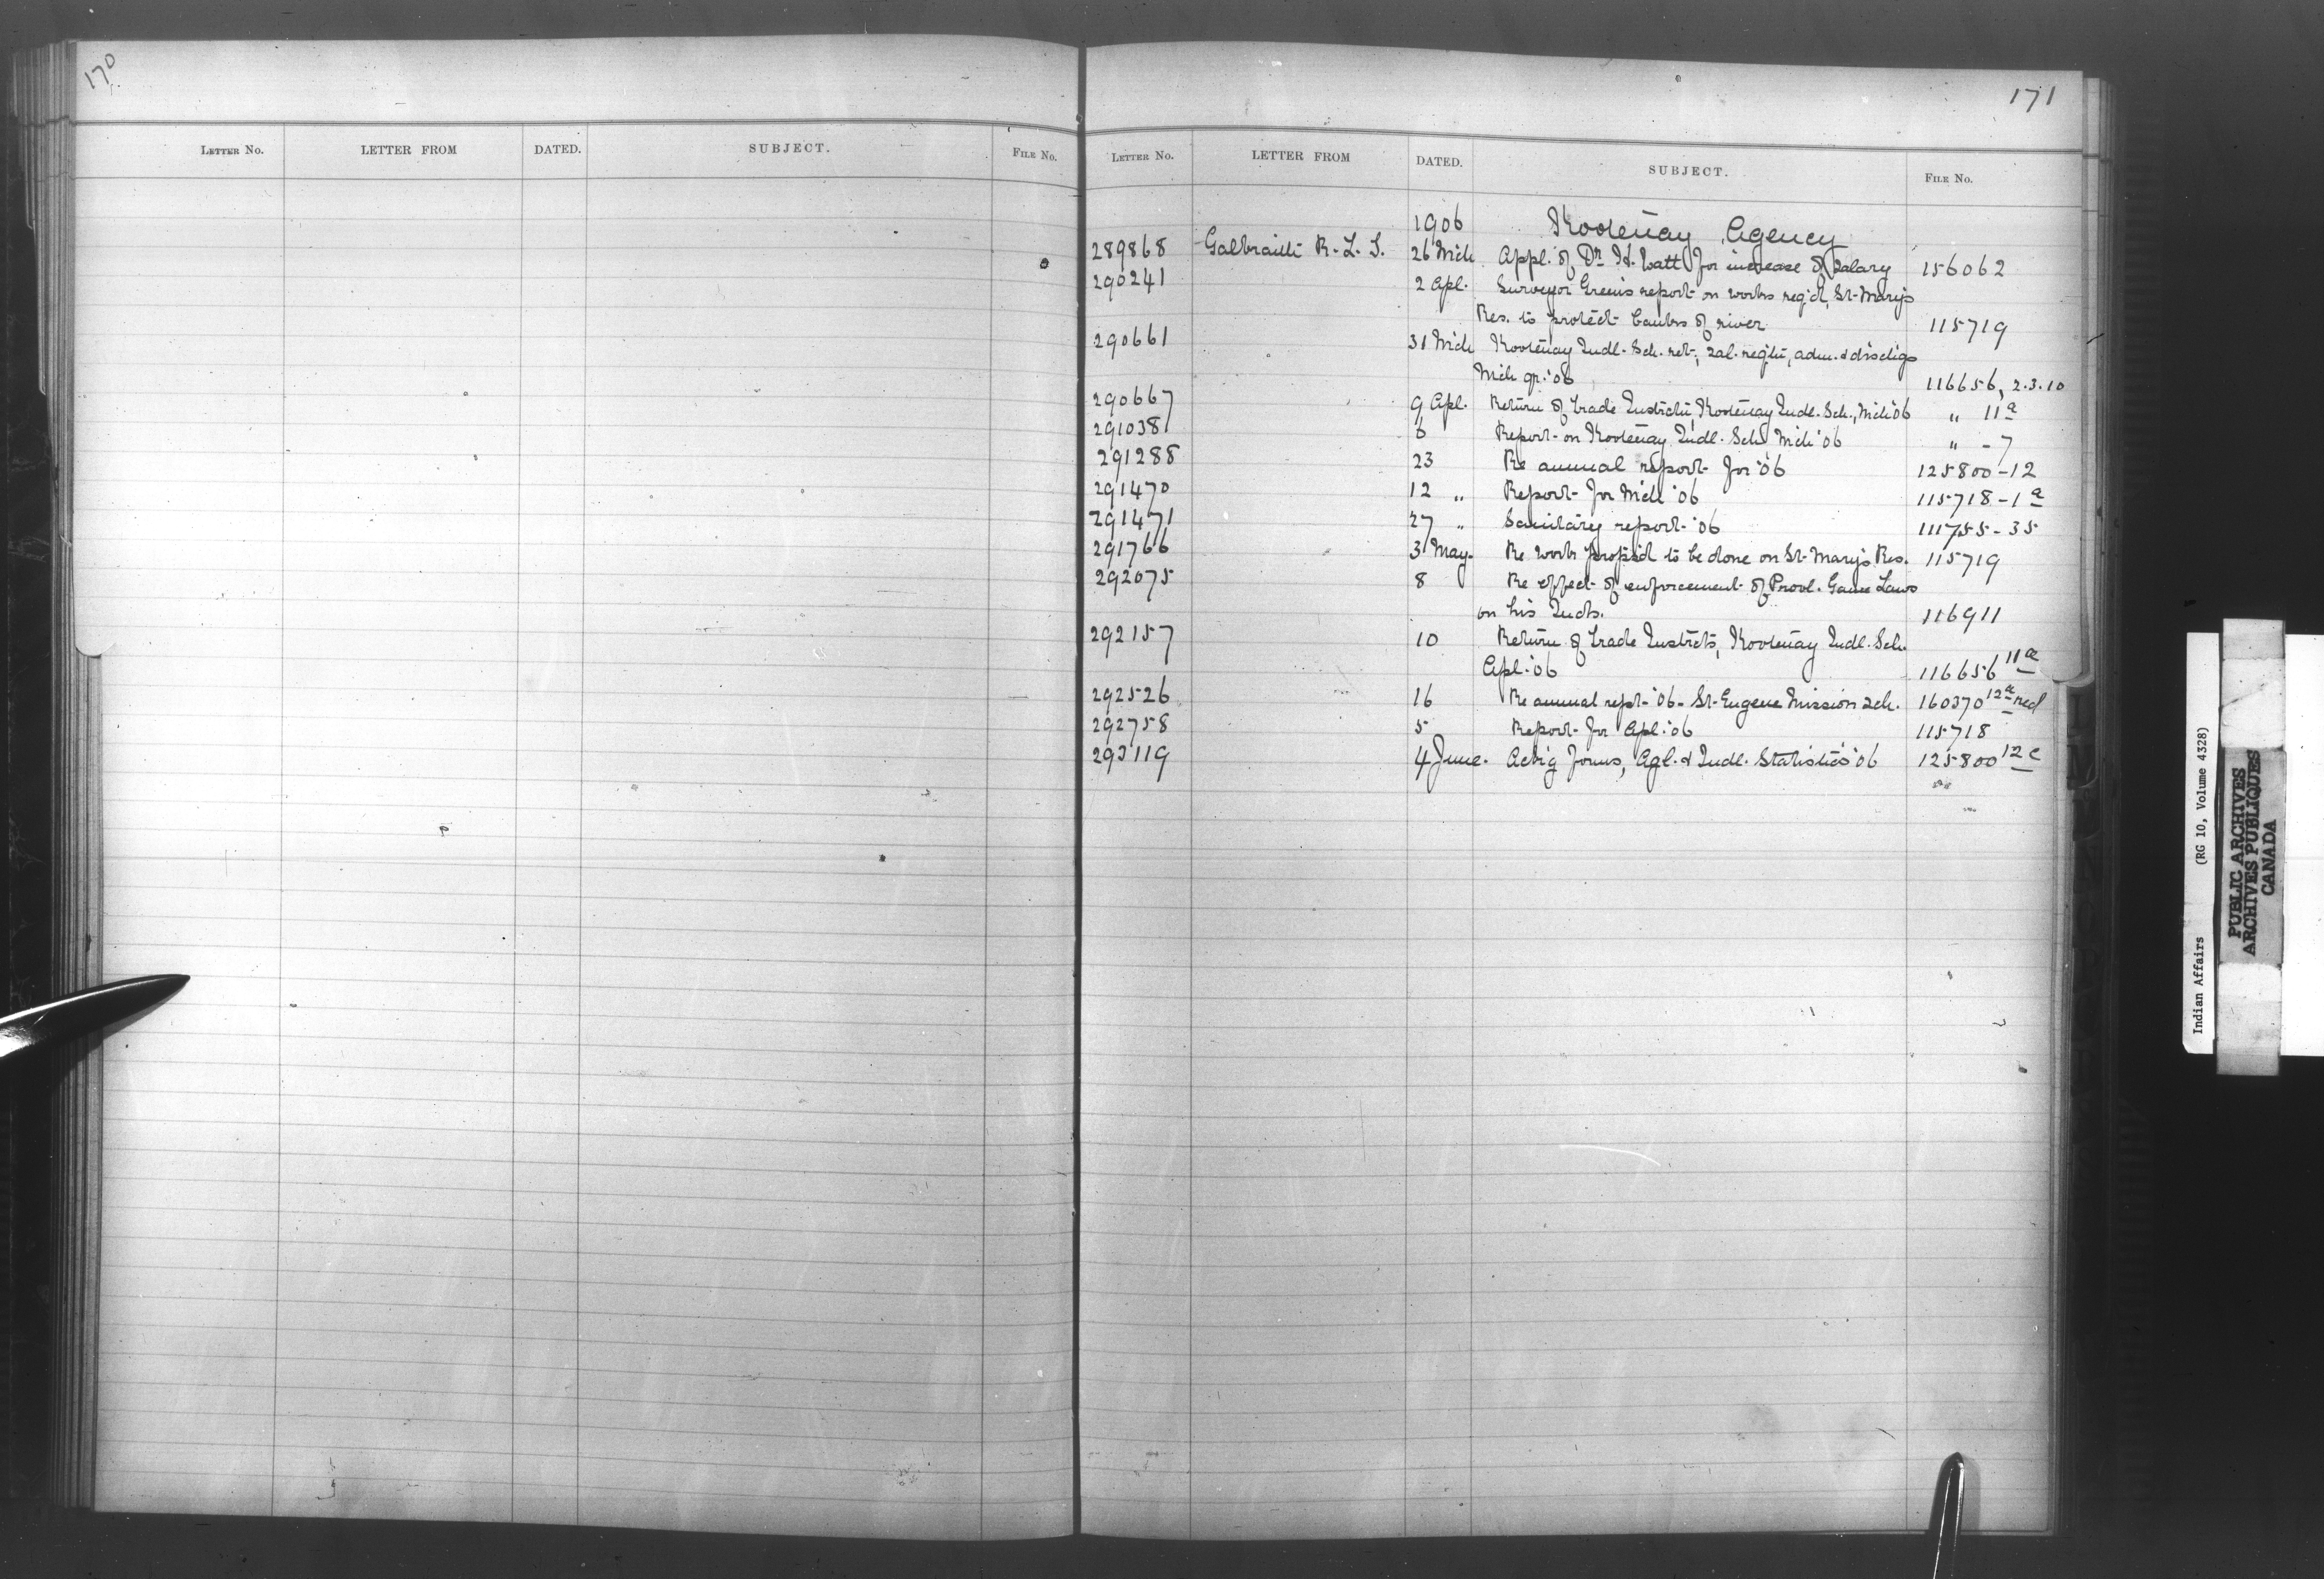 170
LETTER No. LETTER FROM DATED. SUBJECT. FILE No.
171
LETTER No. LETTER FROM DATED. SUBJECT. FILE No.
1906 Kootenay Agency
289868 Galbraith R. L. T. 26 Mch Appl. of Dr H. Watt for increase of salary 156062
290241 2 Apl. Surveyor Green's report on works req'd, St. Mary's
Res. to protect banks of river 115719
290661 31 Mch Kootenay Indl. Sch. ret., sal. regtr, adm. & dischgs
Mch qr. '06 116656, 2.3.10
290667 9 Apl. Return of trade Instrctn, Kootenay Indl. Sch., Mch '06 " 11a
291038 6 Report on Kootenay Indl. Sch. Mch '06 " - 7
291288 23 Re annual report for '06 125800-12
291470 12 " Report for Mch '06 115718-1a
291471 27 " Sanitary report '06 111755-35
291766 3 May. Re work propos'd to be done on St. Mary's Res. 115719
292075 8 Re effect of enforcement of Provl. Game Laws
on his Inds. 116911
292157 10 Return of trade Instrctn, Kootenay Indl. Sch.
Apl. '06 116656 11a
292526 16 Re annual rept. '06 - St. Eugene Mission Sch. 160370 12a red
292758 5 Report for Apl. '06 115718
293119 4 June. Ackg forms, Agl. & Indl. Statistics '06 125800 12c
Indian Affairs (RG 10, Volume 4328)
PUBLIC ARCHIVES
ARCHIVES PUBLIQUES
CANADA